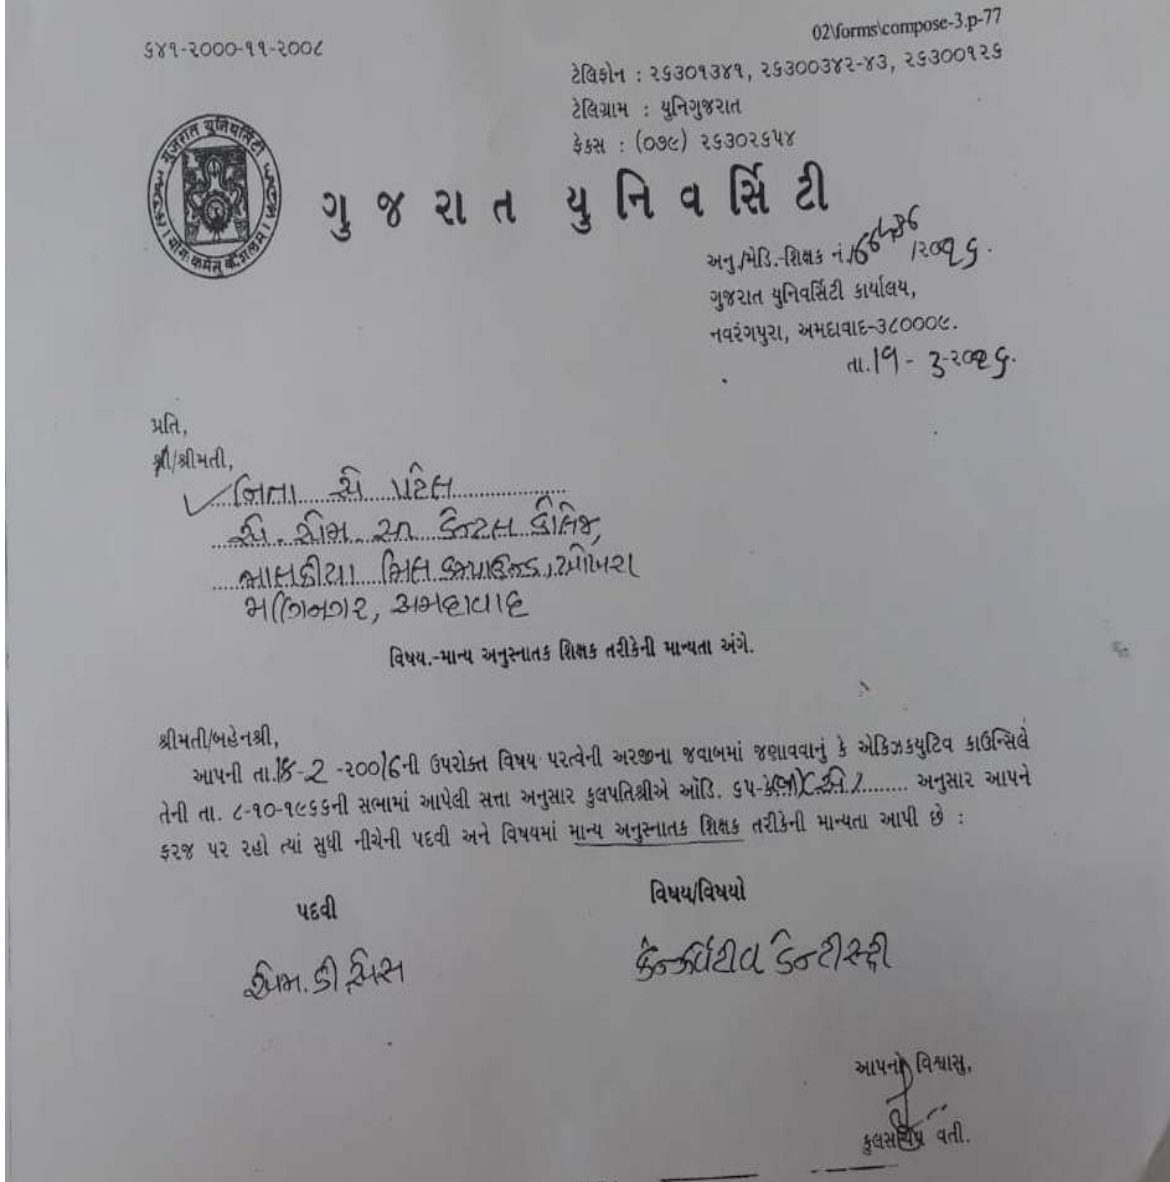 ૬૪૧-૨૦૦૦-૧૧-૨૦૦૮
02\forms\compose-3.p-77
ટેલિફોન : ૨૬૩૦૧૩૪૧, ૨૬૩૦૦૩૪૨-૪૩, ૨૬૩૦૦૧૨૬
ટેલિગ્રામ : યુનિગુજરાત
ફેક્સ : (૦૭૯) ૨૬૩૦૨૬૫૪
ગુજરાત યુનિવર્સિટી
ગુજરાત યુનિવર્સિટી
અનુ./મેડિ.-શિક્ષક નં.
ગુજરાત યુનિવર્સિટી કાર્યાલય,
નવરંગપુરા, અમદાવાદ-૩૮૦૦૦૯.
તા.19-3-૨૦૧૬.
પ્રતિ,
શ્રી/શ્રીમતી,
પટેલ
ડેન્ટલ કોલેજ,
મિલ કમ્પાઉન્ડ, ખોખરા
મણિનગર, અમદાવાદ
વિષય.-માન્ય અનુસ્નાતક શિક્ષક તરીકેની માન્યતા અંગે.
શ્રીમતી/બહેનશ્રી,
આપની તા. ઉપરોક્ત વિષય પરત્વેની અરજીના જવાબમાં જણાવવાનું કે એક્ઝિક્યુટિવ કાઉન્સિલે
તેની તા. ૮-૧૦-૧૯૬૬ની સભામાં આપેલી સત્તા અનુસાર કુલપતિશ્રીએ ઑર્ડિ. ૬૫- અનુસાર આપને
ફરજ પર રહો ત્યાં સુધી નીચેની પદવી અને વિષયમાં માન્ય અનુસ્નાતક શિક્ષક તરીકેની માન્યતા આપી છે :
પદવી વિષય/વિષયો
એમ.ડી.એસ કન્ઝર્વેટીવ ડેન્ટીસ્ટ્રી
આપનો વિશ્વાસુ,
કુલસચિવ વતી.